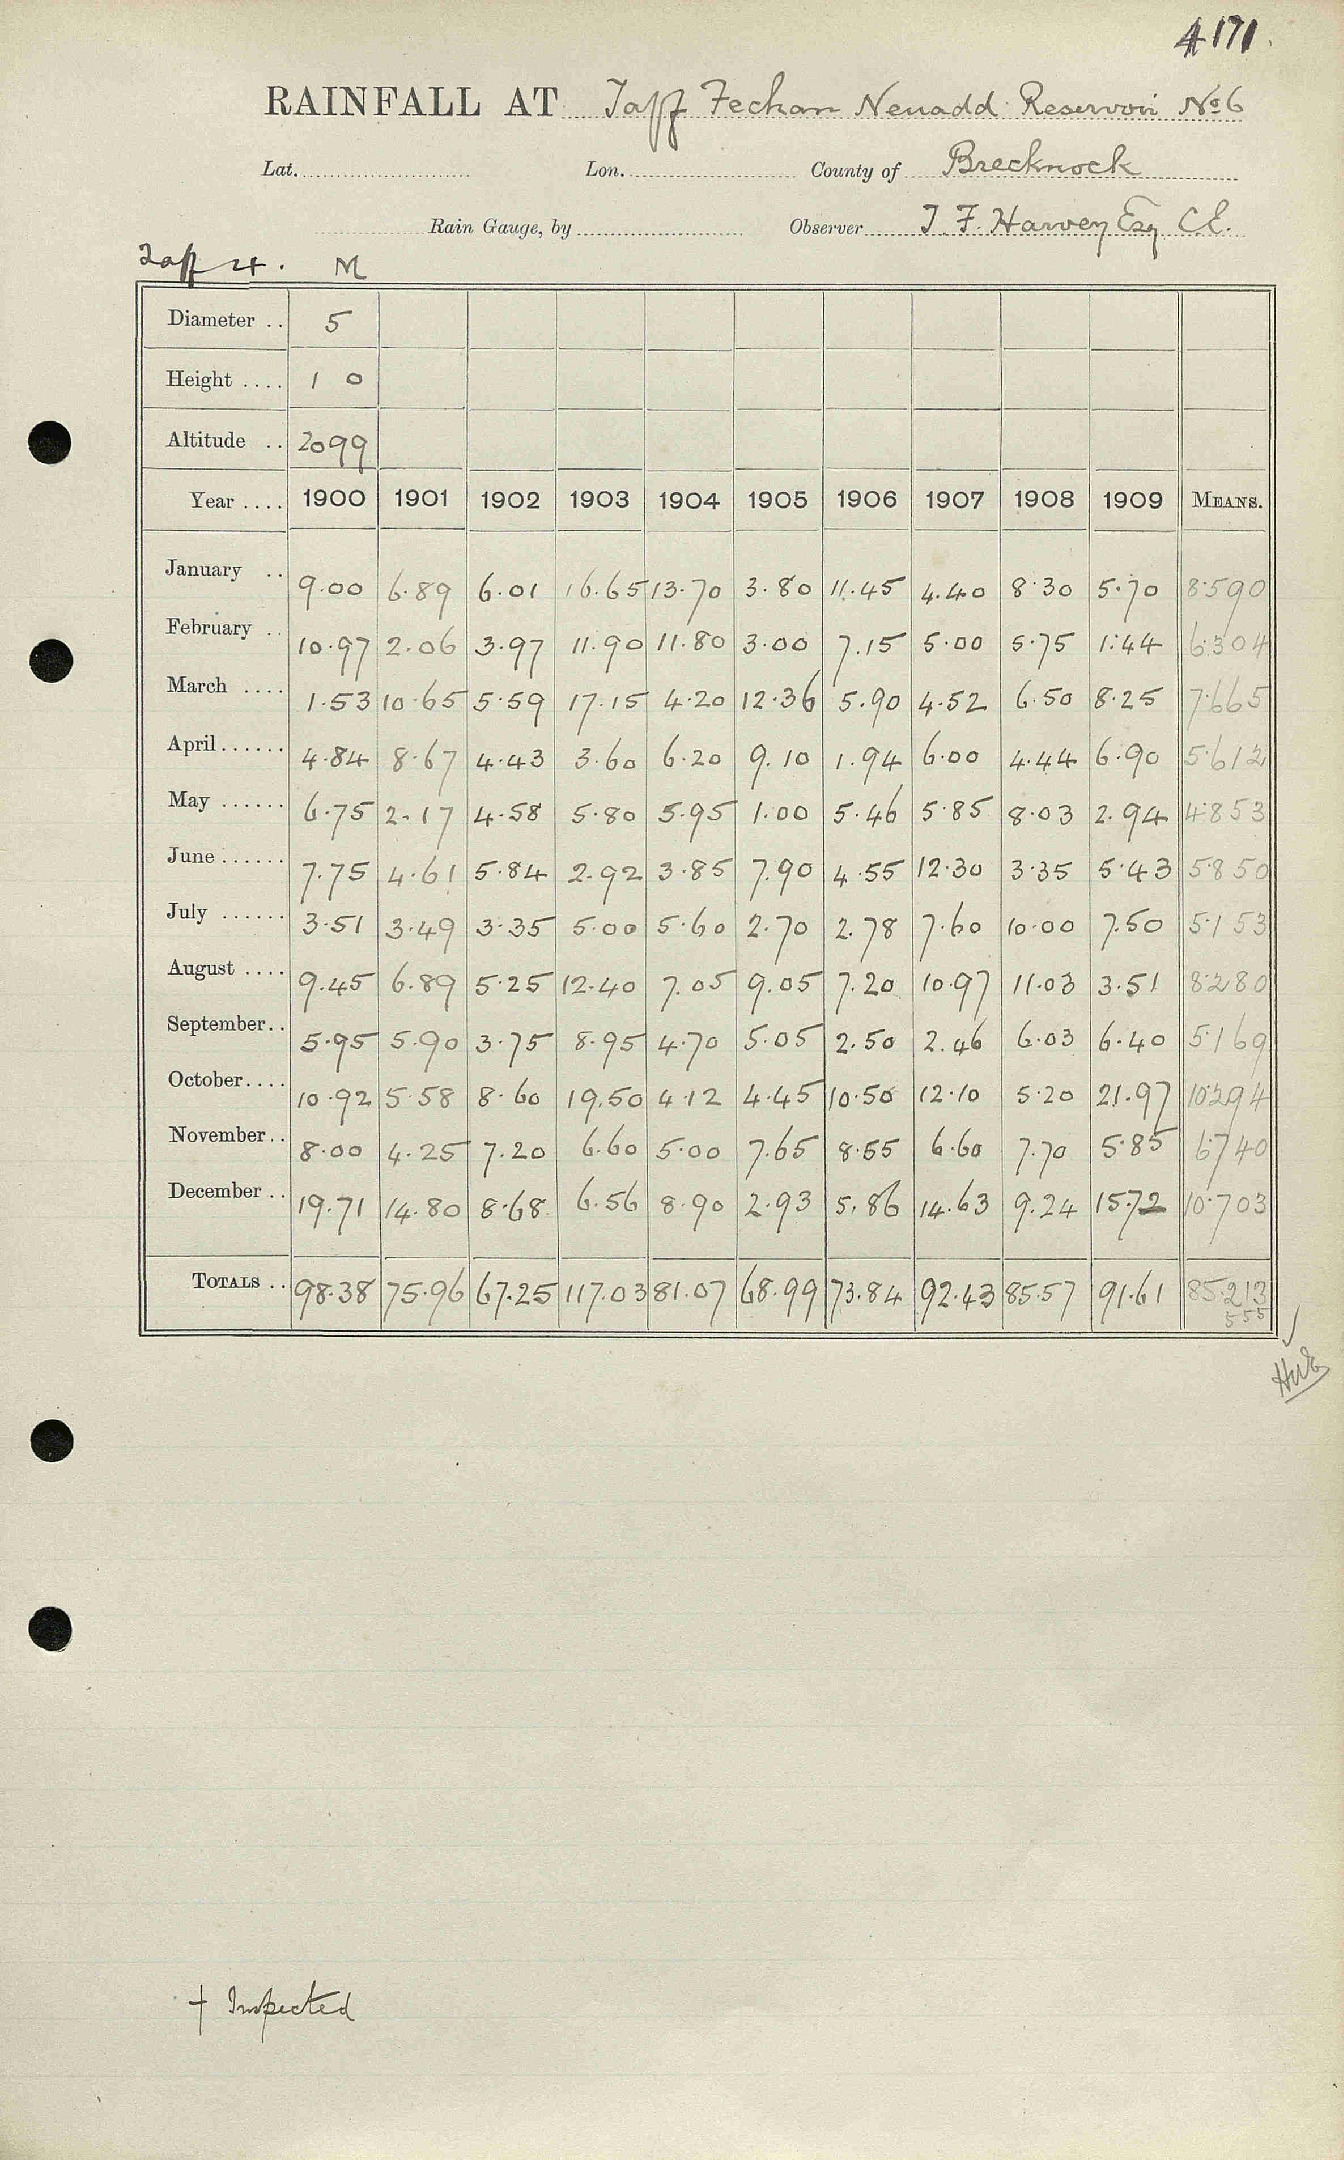 4171.
RAINFALL AT Taff Fechan Neuadd Reservoir No 6
Lat. Lon. County of Brecknock
Rain Gauge, by Observer T. F. Harvey Esq C.E.
Taff 4. M
Diameter .. 5
Height .... 1 0
Altitude .. 2099
Year .... 1900 1901 1902 1903 1904 1905 1906 1907 1908 1909 MEANS.
January .. 9.00 6.89 6.01 16.65 13.70 3.80 11.45 4.40 8.30 5.70 8.590
February .. 10.97 2.06 3.97 11.90 11.80 3.00 7.15 5.00 5.75 1.44 6.304
March .... 1.53 10.65 5.59 17.15 4.20 12.36 5.90 4.52 6.50 8.25 7.665
April ...... 4.84 8.67 4.43 3.60 6.20 9.10 1.94 6.00 4.44 6.90 5.612
May ...... 6.75 2.17 4.58 5.80 5.95 1.00 5.46 5.85 8.03 2.94 4.853
June ...... 7.75 4.61 5.84 2.92 3.85 7.90 4.55 12.30 3.35 5.43 5.850
July ...... 3.51 3.49 3.35 5.00 5.60 2.70 2.78 7.60 10.00 7.50 5.153
August .... 9.45 6.89 5.25 12.40 7.05 9.05 7.20 10.97 11.03 3.51 8.280
September.. 5.95 5.90 3.75 8.95 4.70 5.05 2.50 2.46 6.03 6.40 5.169
October.... 10.92 5.58 8.60 19.50 4.12 4.45 10.50 12.10 5.20 21.97 10.294
November.. 8.00 4.25 7.20 6.60 5.00 7.65 8.55 6.60 7.70 5.85 6.740
December .. 19.71 14.80 8.68 6.56 8.90 2.93 5.86 14.63 9.24 15.72 10.703
TOTALS .. 98.38 75.96 67.25 117.03 81.07 68.99 73.84 92.43 85.57 91.61 85.213
555
† Inspected